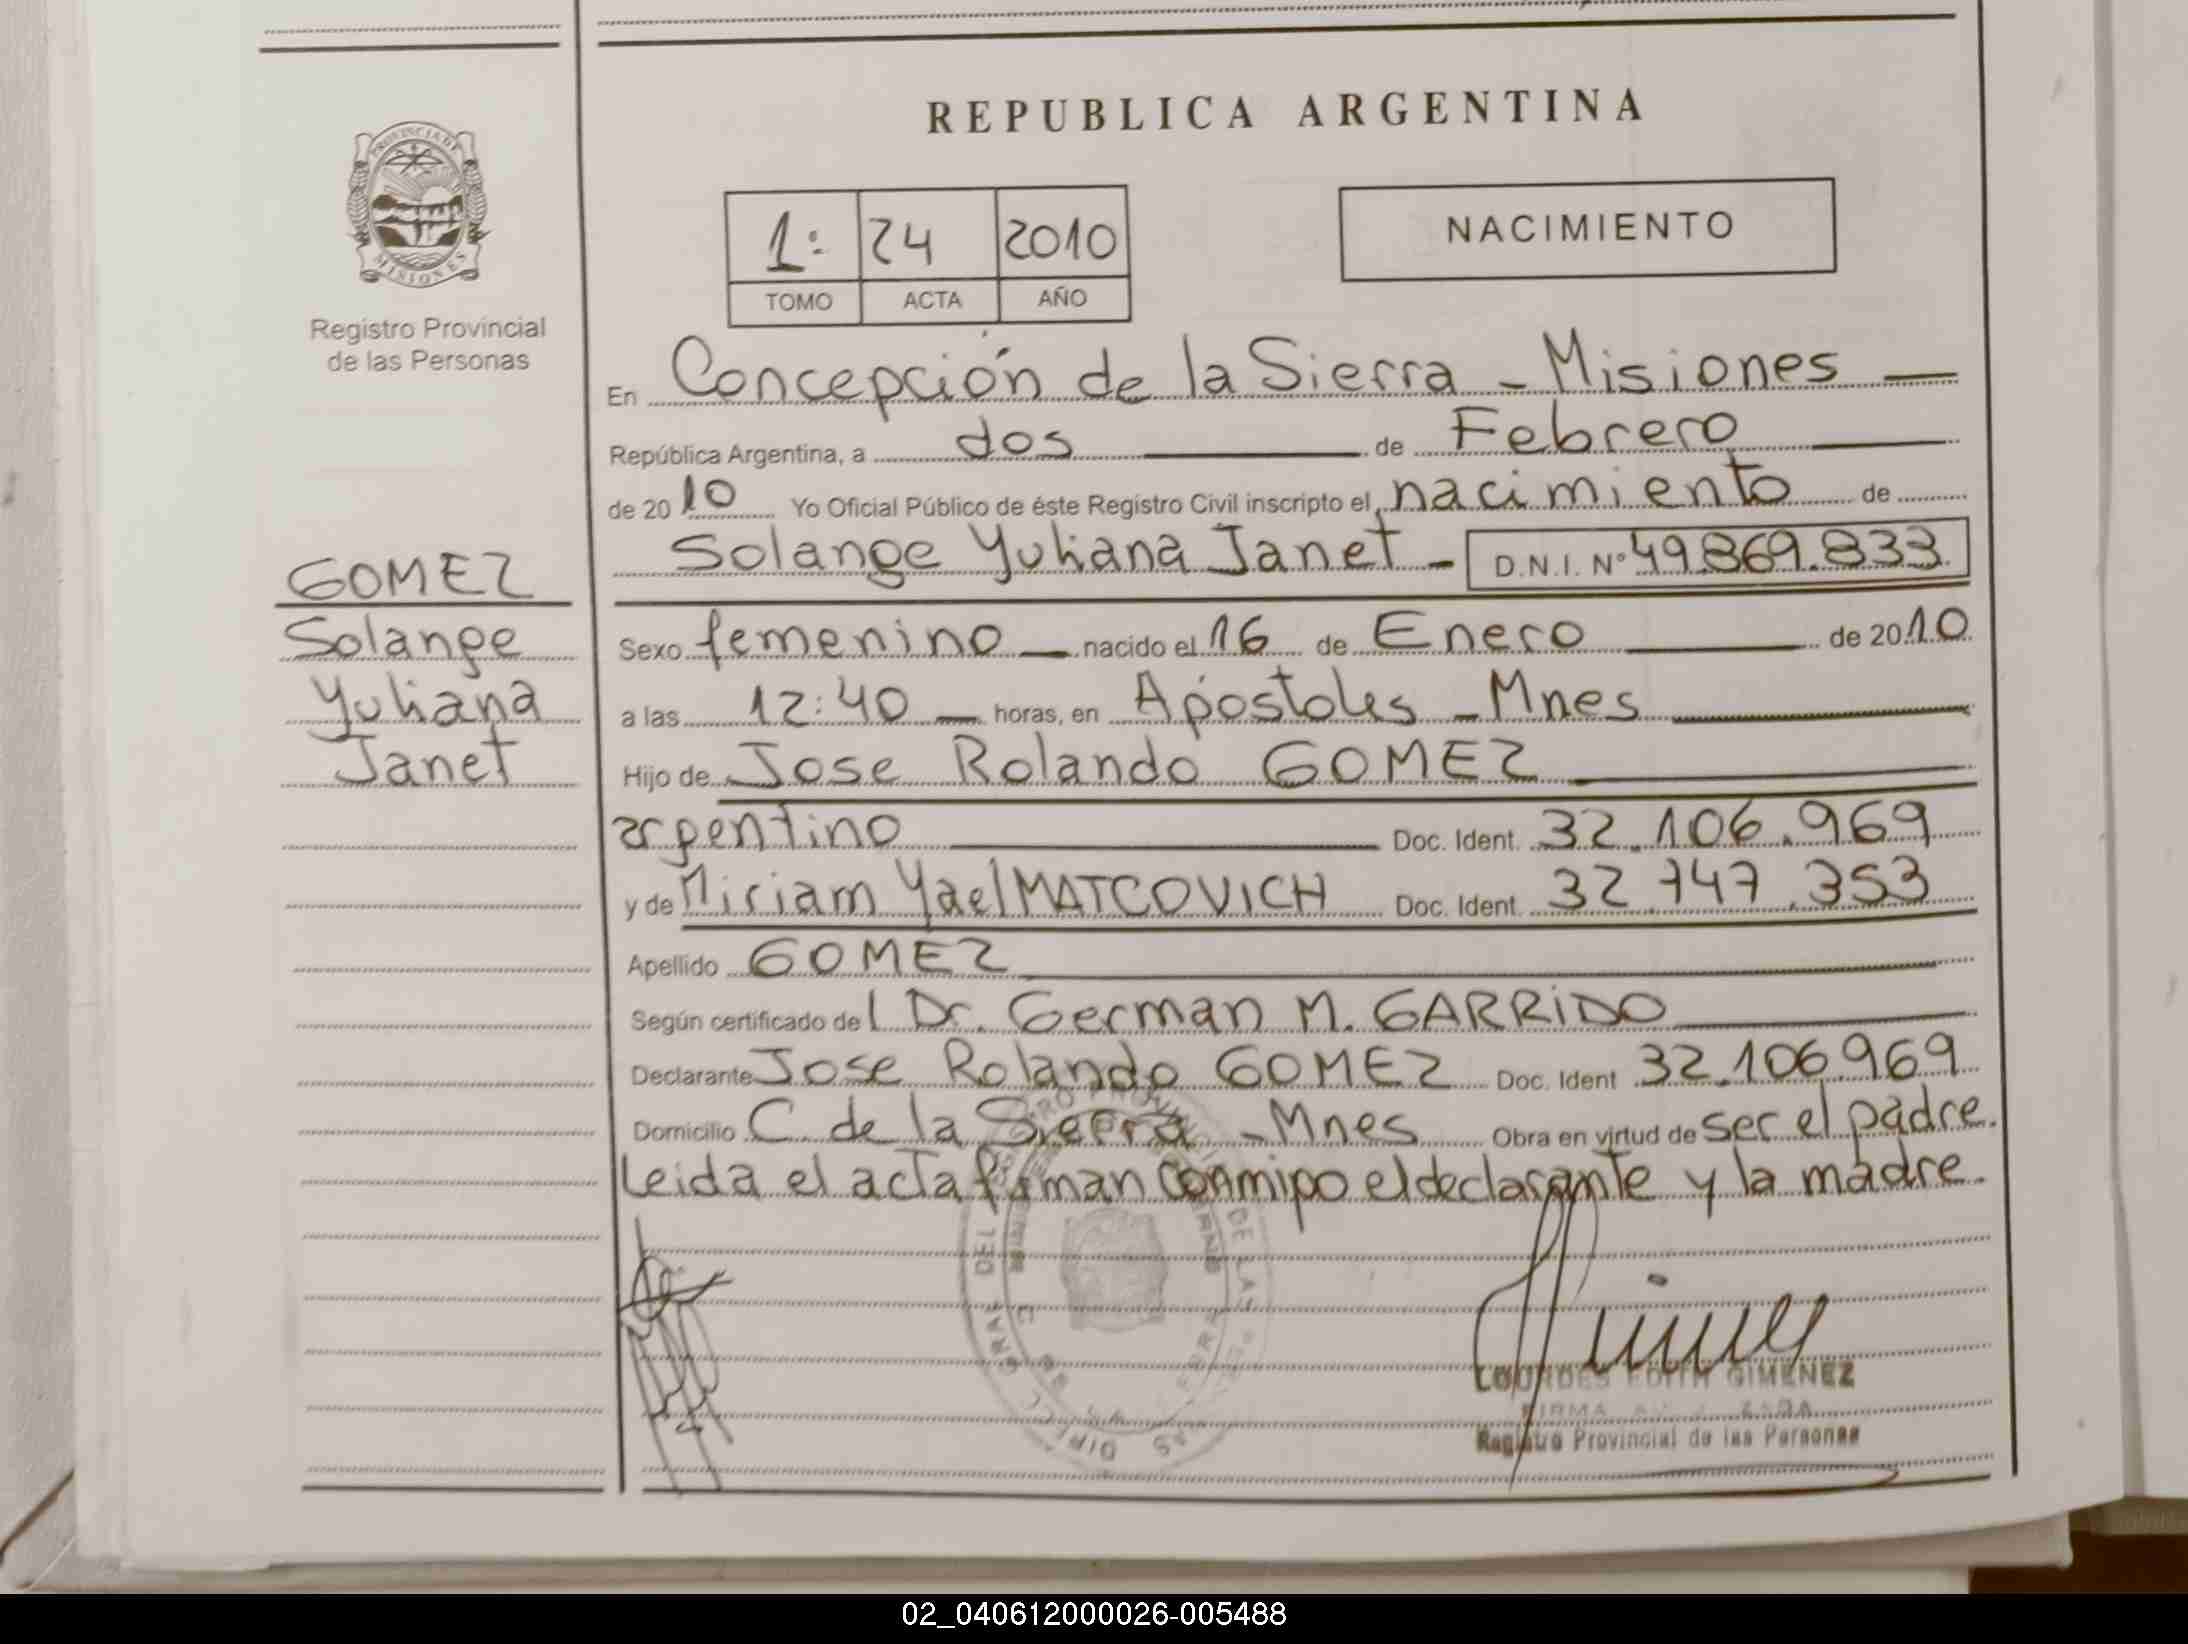 REPUBLICA ARGENTINA
PROVINCIA DE
MISIONES
Registro Provincial
de las Personas
1: 24 2010
TOMO ACTA AÑO
NACIMIENTO
En Concepción de la Sierra - Misiones
República Argentina, a dos de Febrero
de 2010 Yo Oficial Público de éste Registro Civil inscripto el nacimiento de
Solange Yuliana Janet - D.N.I. Nº 49.869.833
GOMEZ
Solange
Yuliana
Janet
Sexo femenino nacido el 16 de Enero de 2010
a las 12:40 horas, en Apóstoles - Mnes
Hijo de Jose Rolando GOMEZ
argentino Doc. Ident. 32.106.969
y de Miriam Yael MATCOVICH Doc. Ident. 32.747.353
Apellido GOMEZ
Según certificado del Dr. German M. GARRIDO
Declarante Jose Rolando GOMEZ Doc. Ident 32.106969
Domicilio C. de la Sierra - Mnes Obra en virtud de ser el padre.
Leida el acta firman conmipo el declarante y la madre.
LOURDES EDITH GIMENEZ
FIRMA
Registro Provincial de las Personas
02_040612000026-005488